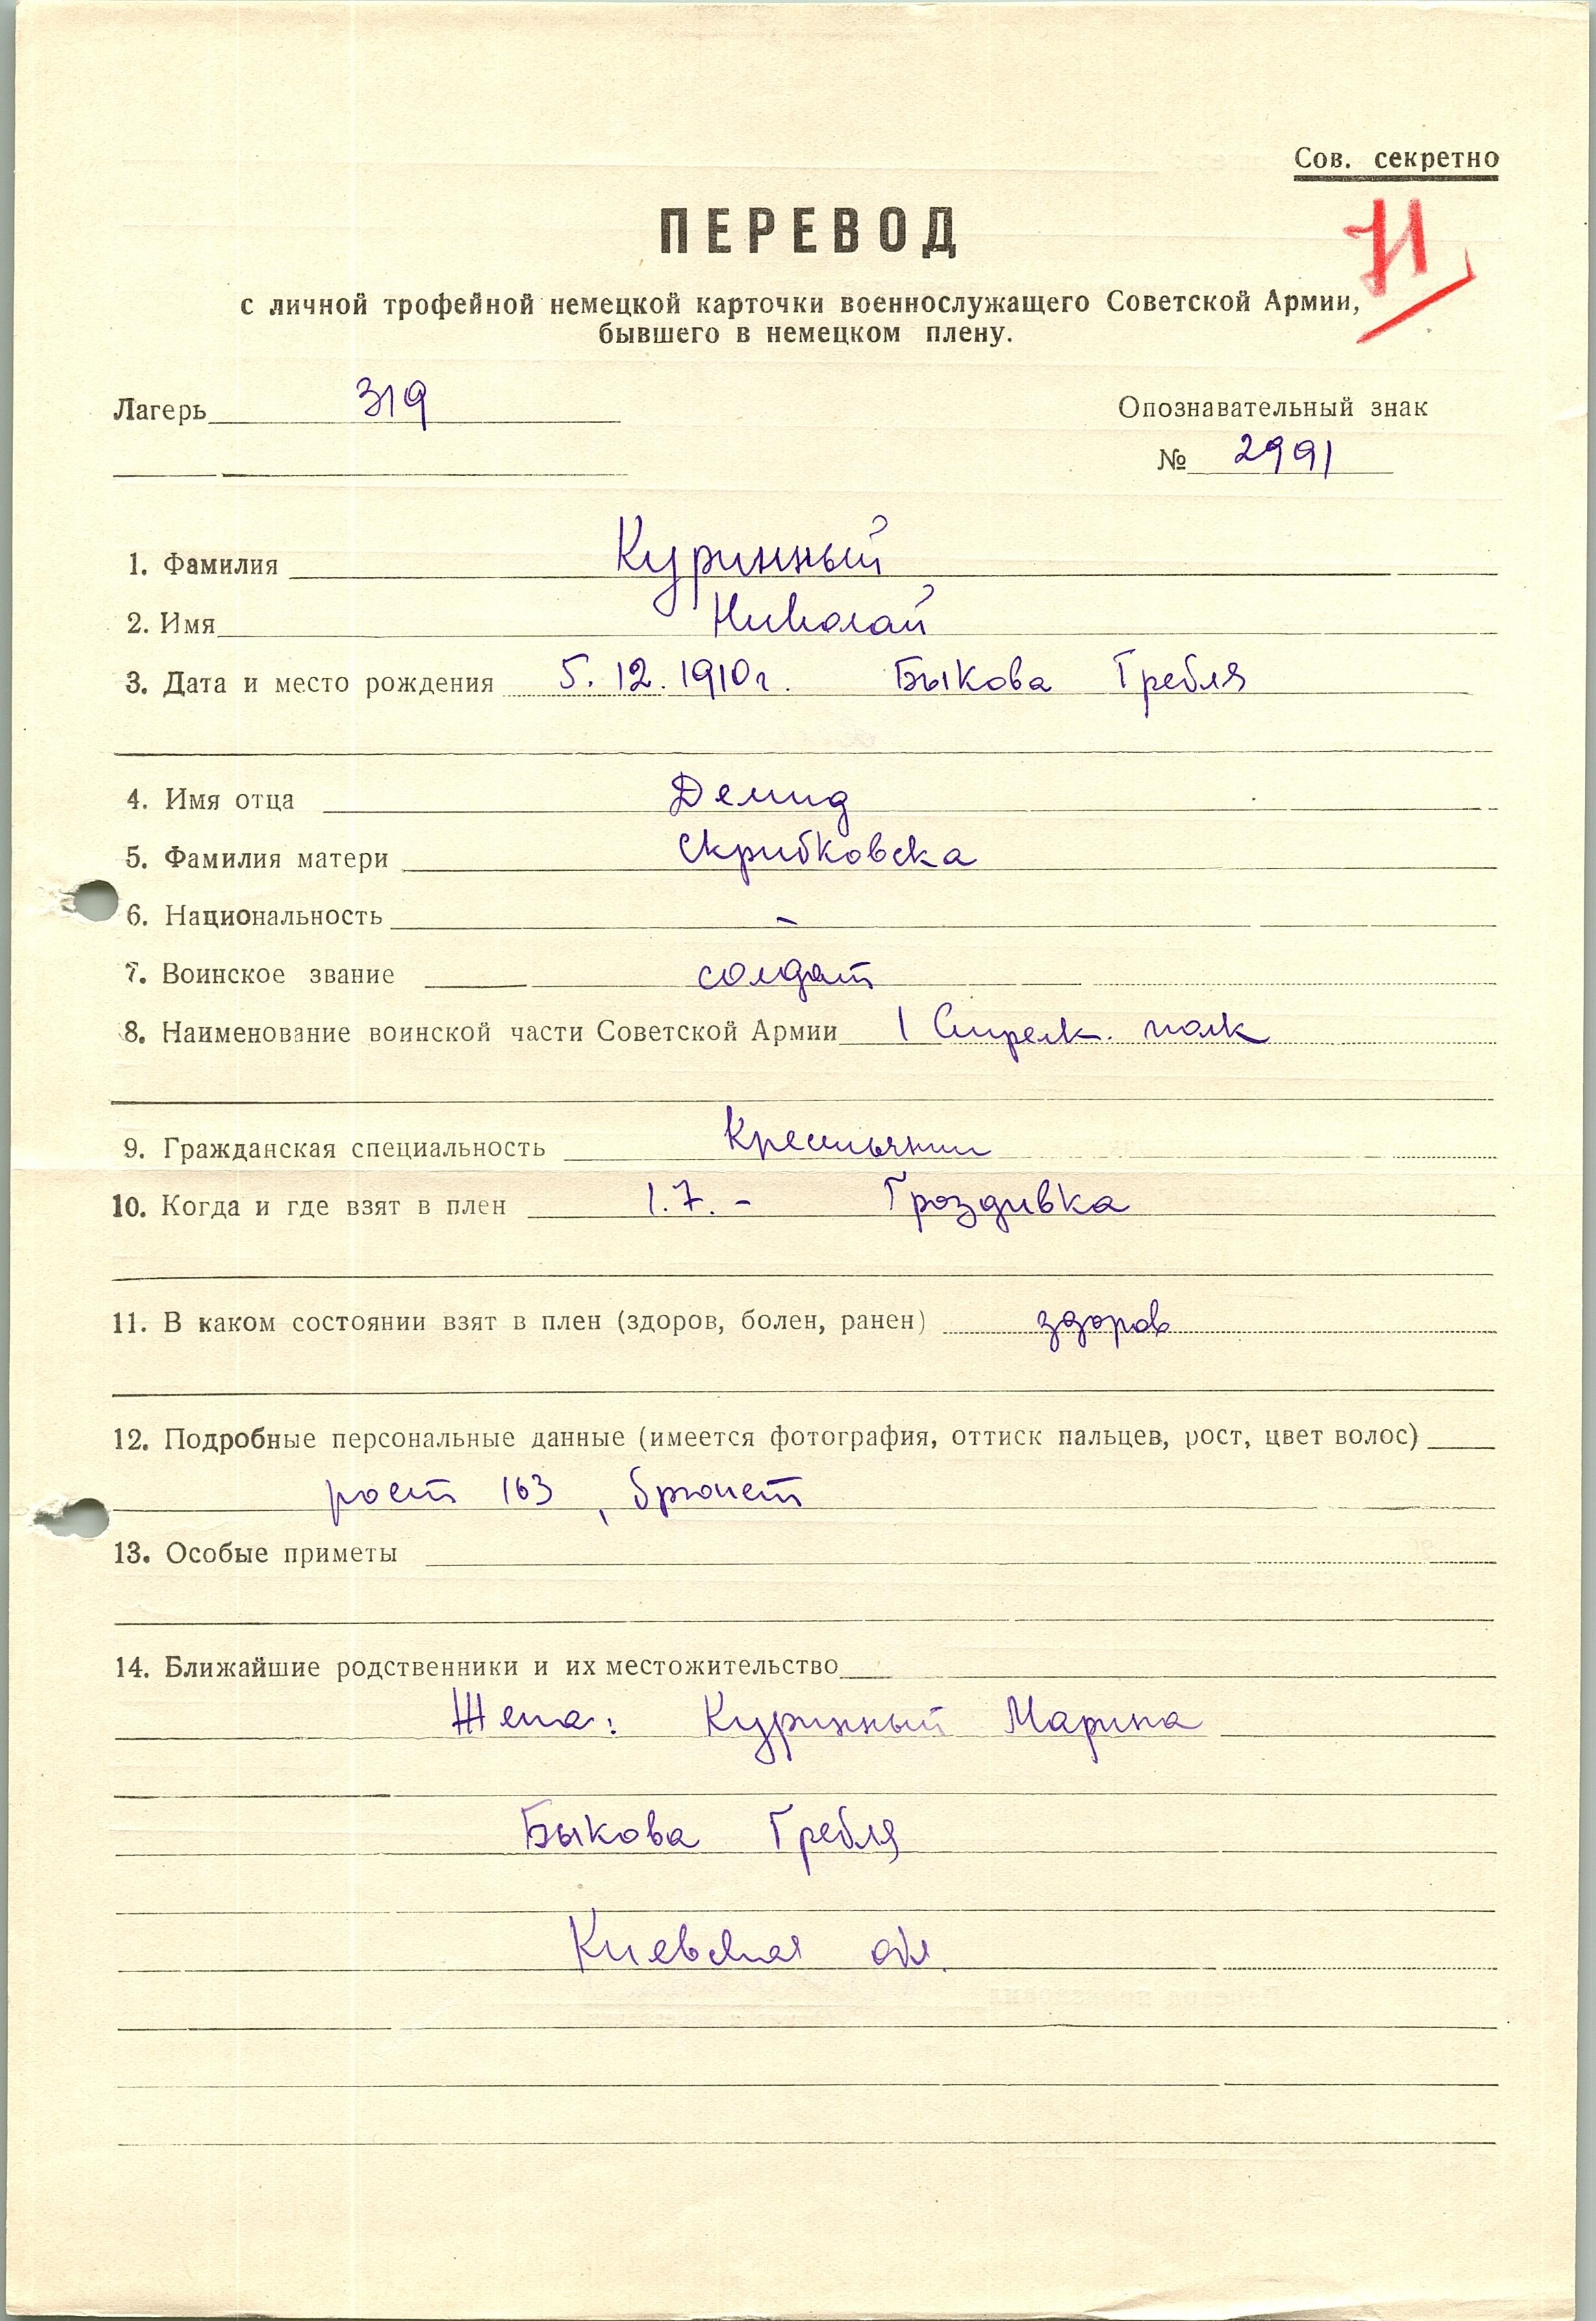 Сов. секретно
ПЕРЕВОД
с личной трофейной немецкой карточки военнослужащего Советской Армии,
бывшего в немецком плену.
Лагерь 319
Опознавательный знак
№ 2991
1. Фамилия Куринный
2. Имя Николай
3. Дата и место рождения 5.12.1910г. Быкова Гребля
4. Имя отца Демид
5. Фамилия матери Скрибковска
6. Национальность –
7. Воинское звание солдат
8. Наименование воинской части Советской Армии 1 Стрелк. полк
9. Гражданская специальность Крестьянин
10. Когда и где взят в плен 1.7. – Гроздивка
11. В каком состоянии взят в плен (здоров, болен, ранен) здоров
12. Подробные персональные данные (имеется фотография, оттиск пальцев, рост, цвет волос)
рост 163, брюнет
13. Особые приметы
14. Ближайшие родственники и их местожительство
Жена: Куринный Марина
Быкова Гребля
Киевская обл.